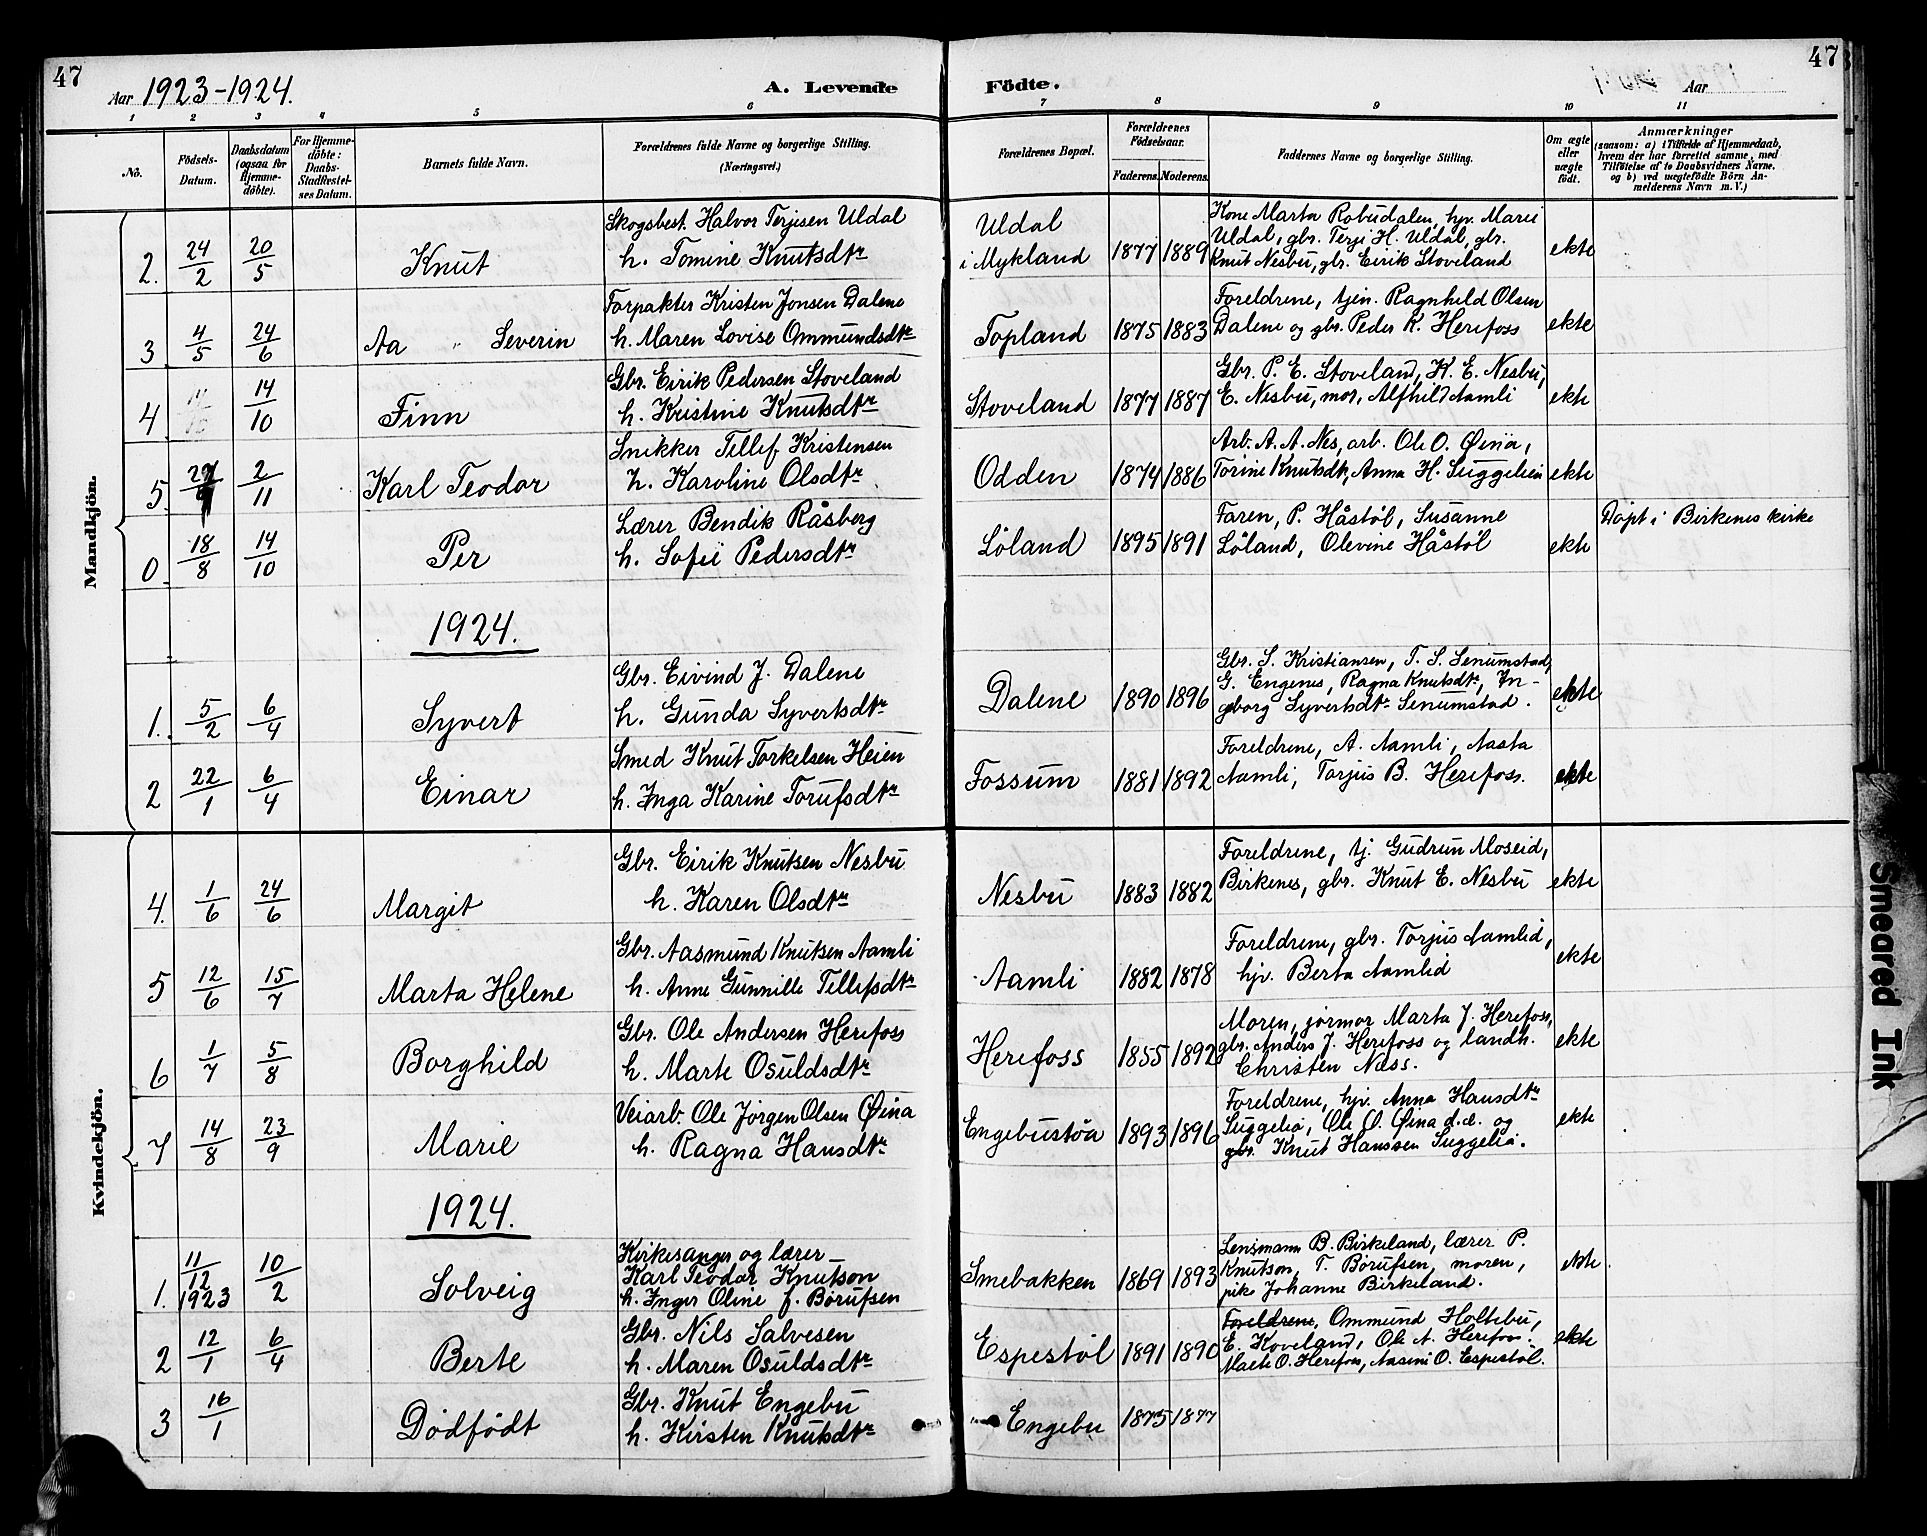 47
Aar 1923-1924.
A. Levende Födte.
Aar
47
1 2 3 4 5 6 7 8 9 10 11
No.
Födsels-Datum.
Daabsdatum (ogsaa for Hjemme-döbte).
For Hjemme-döbte: Daabs-Stadfæstel-ses Datum.
Barnets fulde Navn.
Forældrenes fulde Navne og borgerlige Stilling. (Næringsvei.)
Forældrenes Bopæl.
Forældrenes Födselsaar.
Faderens. Moderens.
Faddernes Navne og borgerlige Stilling.
Om ægte eller uægte födt.
Anmærkninger
(saasom: a) i Tilfælde af Hjemmedaab, hvem der har forrettet samme, med Tilföielse af to Daabsvidners Navne, og b) ved uægtefödte Börn An-melderens Navn m. V.)
Mandkjön.
2. 24/2 20/5 Knut
Skogsbest. Halvor Terjesen Uldal
h. Tomine Knutsdtr
Uldal
i Mykland 1877 1889
Kone Marta Robudalen, hjv. Marei
Uldal, gbr. Terje H. Uldal, gbr.
Knut Nesbu, gbr. Eirik Stoveland
ekte
3 4/5 24/6 Aa " Severin
Forpakter Kristen Jonsen Dalene
h. Maren Lovise Ommundsdtr
Topland 1875 1883
Foreldrene, tjen. Ragnhild Olsen
Dalene og gbr. Peder K. Herefoss
ekte
4 14/10 Finn
Gbr. Eirik Pedersen Stoveland
h. Kristine Knutsdtr
Stoveland 1877 1887
Gbr. P. E. Stoveland, K. E. Nesbu,
E. Nesbu, mor, Alfhild Aamli
ekte
5. 2/11 Karl Teodor
Snikker Tellef Kristensen
h. Karoline Olsdtr
Odden 1874 1886
Arb. A. A. Nes, arb. Ole O. Øina,
Torine Knutsdtr, Anna H. Suggelia
ekte
0. 18/8 14/10 Per
Lærer Bendik Råsberg
h. Sofie Pedersdtr
Løland 1895 1891
Faren, P. Håstøl, Susanne
Løland, Olevine Håstøl
ekte
Døpt i Birkenes kirke
1924.
1. 5/2 6/4 Syvert
Gbr. Eivind J. Dalene
h. Gunda Syvertsdtr
Dalene 1890 1896
Gbr. S. Kristiansen, T. S. Senumstad,
G. Engenes, Ragna Knutsdtr, In-
geborg Syvertsdtr Senumstad.
ekte
2 22/1 6/4 Einar
Smed Knut Torkelsen Heien
h. Inga Karine Torufsdtr
Fossum 1881 1892
Foreldrene, A. Aamli, Aasta
Aamli, Torjus B. Herefoss.
ekte
Kvindekjön.
4. 1/6 24/6 Margit
Gbr. Eirik Knutsen Nesbu
h. Karen Olsdtr
Nesbu 1883 1882
Foreldrene, tj. Gudrun Moseid,
Birkenes, gbr. Knut E. Nesbu
ekte
5 12/6 15/7 Marta Helene
Gbr. Aasmund Knutsen Aamli
h. Anne Gunnille Tellefsdtr
Aamli 1882 1878
Foreldrene, gbr. Torjus Aamlid,
hjv. Berta Aamlid
ekte
6 1/7 5/8 Borghild
Gbr. Ole Andersen Herefoss
h. Marte Osuldsdtr
Herefoss 1855 1892
Moren, jormor Marta J. Herefoss,
gbr. Anders J. Herefoss og landh.
Christen Næss.
ekte
7 14/8 23/9 Marie
Veiarb. Ole Jørgen Olsen Øina
h. Ragna Hansdtr
Engebustøa 1893 1896
Foreldrene, hjv. Anna Hansdtr
Suggelia, Ole O. Øina d.e. og
gbr. Knut Hanssen Suggelia.
ekte
1924.
1. 11/12 1923 10/2 Solveig
Kirkesanger og lærer
Karl Teodor Knutson
h. Inger Oline f. Børufsen
Smebakken 1869 1893
Lensmann B. Birkeland, lærer P.
Knutson, T. Børufsen, moren,
pike Johanne Birkeland.
ekte
2 12/1 6/4 Berte
Gbr. Nils Salvesen
h. Maren Osuldsdtr
Espestøl 1891 1890
Foreldrene, Ommund Holtebu,
E. Koveland, Ole A. Herefoss.
O. Herefoss, O. Espestøl.
ekte
3 16/1 Dødfødt
Gbr. Knut Engebu
h. Kirsten Knutsdtr
Engebu 1875 1877
Smeared Ink